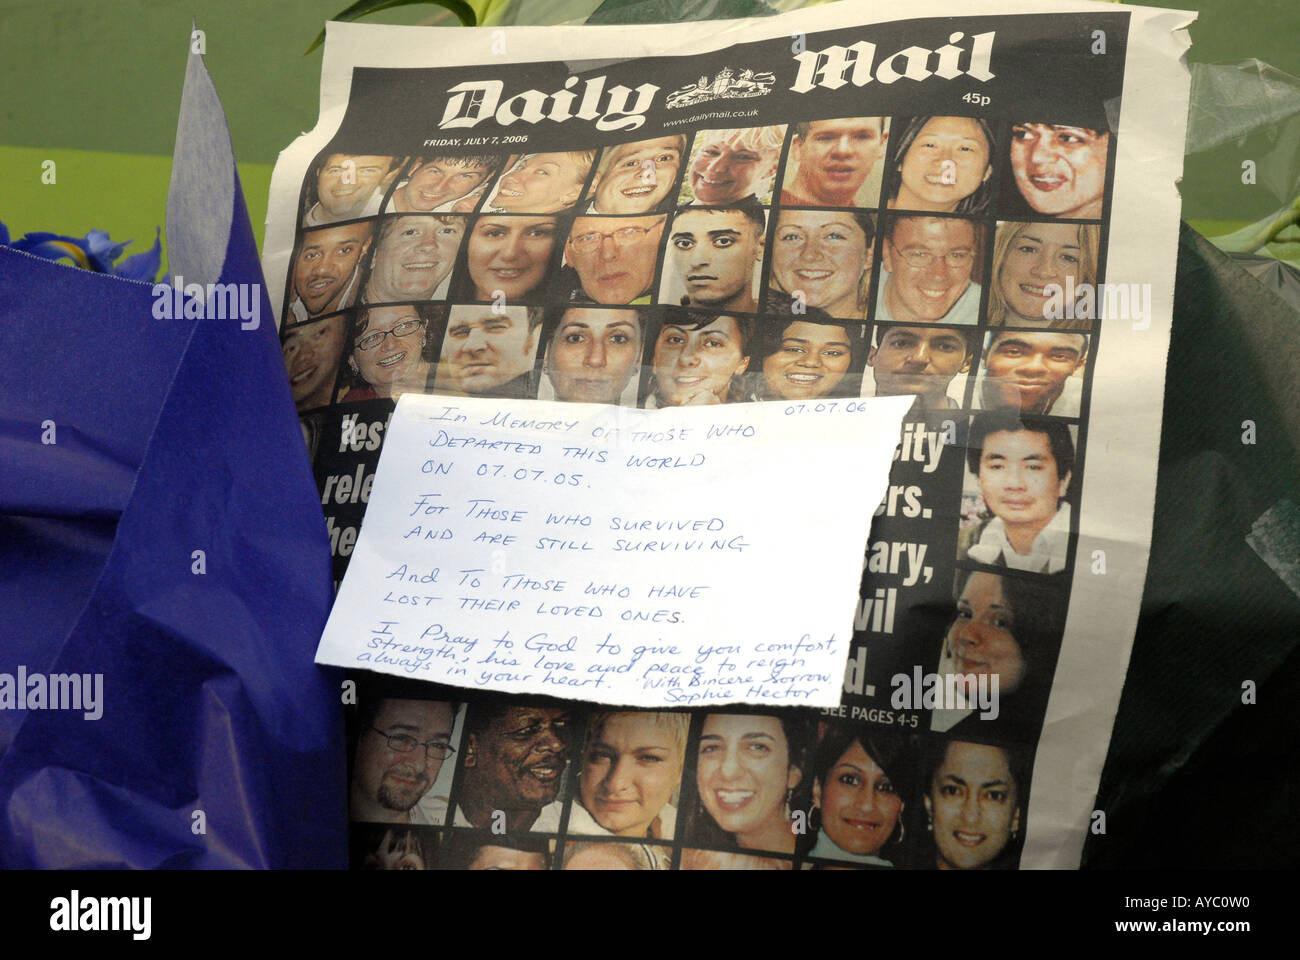 Daily Mail
www.dailymail.co.uk
45p
FRIDAY, JULY 7, 2006
07.07.06
IN MEMORY OF THOSE WHO
DEPARTED THIS WORLD
ON 07.07.05.
FOR THOSE WHO SURVIVED
AND ARE STILL SURVIVING
AND TO THOSE WHO HAVE
LOST THEIR LOVED ONES.
I Pray to God to give you comfort,
strength, his love and peace to reign
always in your heart. With Sincere Sorrow
Sophie Hector
Yes
rele
he
city
ers.
sary,
vil
d.
SEE PAGES 4-5
alamy
Image ID: AYC0W0
www.alamy.com